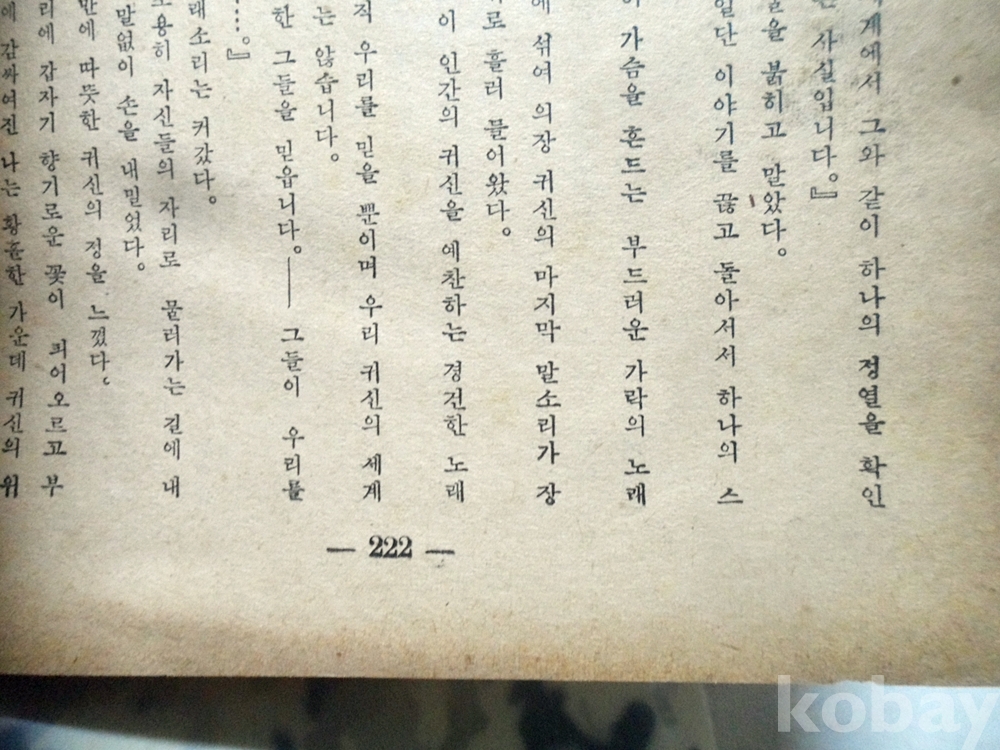 계에서 그와 같이 하나의 정열을 확인
사실입니다。』
을 붉히고 말았다。
일단 이야기를 끊고 돌아서서 하나의 스
가슴을 흔드는 부드러운 가락의 노래
에 섞여 의장 귀신의 마지막 말소리가 장
로 흘러 들어왔다。
이 인간의 귀신을 예찬하는 경건한 노래
직 우리를 믿을 뿐이며 우리 귀신의 세계
는 않습니다。
한 그들을 믿읍니다。── 그들이 우리를
……。』
래소리는 커갔다。
용히 자신들의 자리로 물러가는 길에 내
말없이 손을 내밀었다。
만에 따뜻한 귀신의 정을 느꼈다。
리에 갑자기 향기로운 꽃이 피어오르고 부
에 감싸여진 나는 황홀한 가운데 귀신의 위
— 222 —
kobay